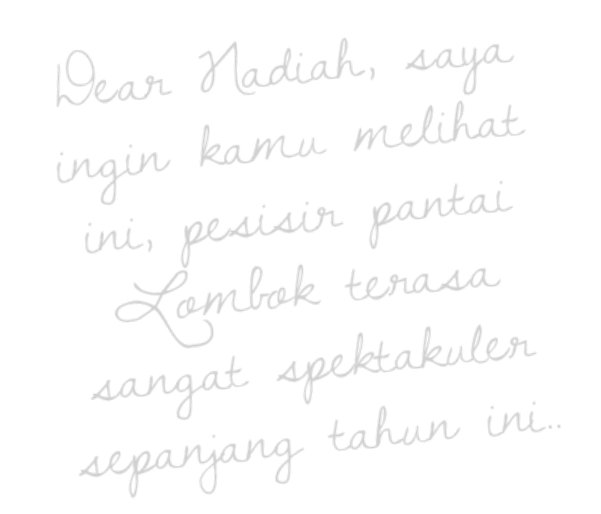 Dear Nadiah, saya
ingin kamu melihat
ini, pesisir pantai
Lombok terasa
sangat spektakuler
sepanjang tahun ini..